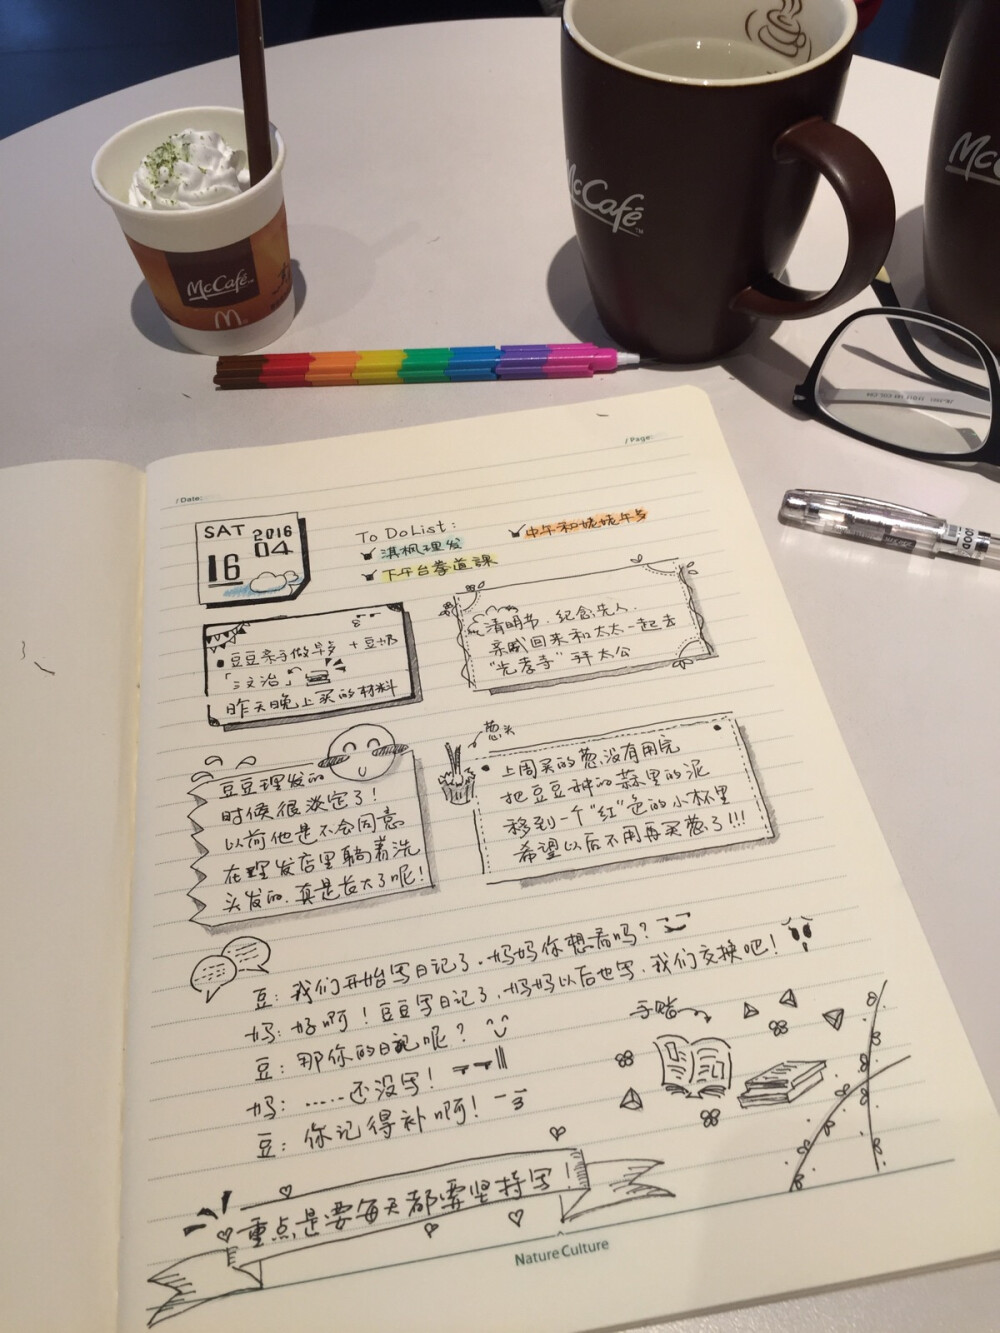 McCafé
McCafé
McCafé
M
/Date:
/Page:
SAT 2016
04
16
To Do List:
淇枫理发
下午台拳道課
中午和姥姥午歺
8
豆豆亲手做早歺 + 豆奶
「三文治」
昨天晚上买的材料
清明节.纪念先人.
亲戚回来和太太一起去
"光孝寺"拜太公
豆豆理发的
时候很淡定了!
以前他是不会同意
在理发店里躺着洗
头发的.真是长大了呢!
葱头
上周买的葱,没有用完
把豆豆种的蒜里的泥
移到一个"红"色的小杯里
希望以后不用再买葱了!!!
豆: 我们开始写日记了.妈妈你想看吗?
妈: 好啊! 豆豆写日记了.妈妈以后也写.我们交换吧!
豆: 那你的日記呢?
妈: ……还没写!
豆: 你记得补啊!
手账
重点是要每天都要坚持写!
Nature Culture